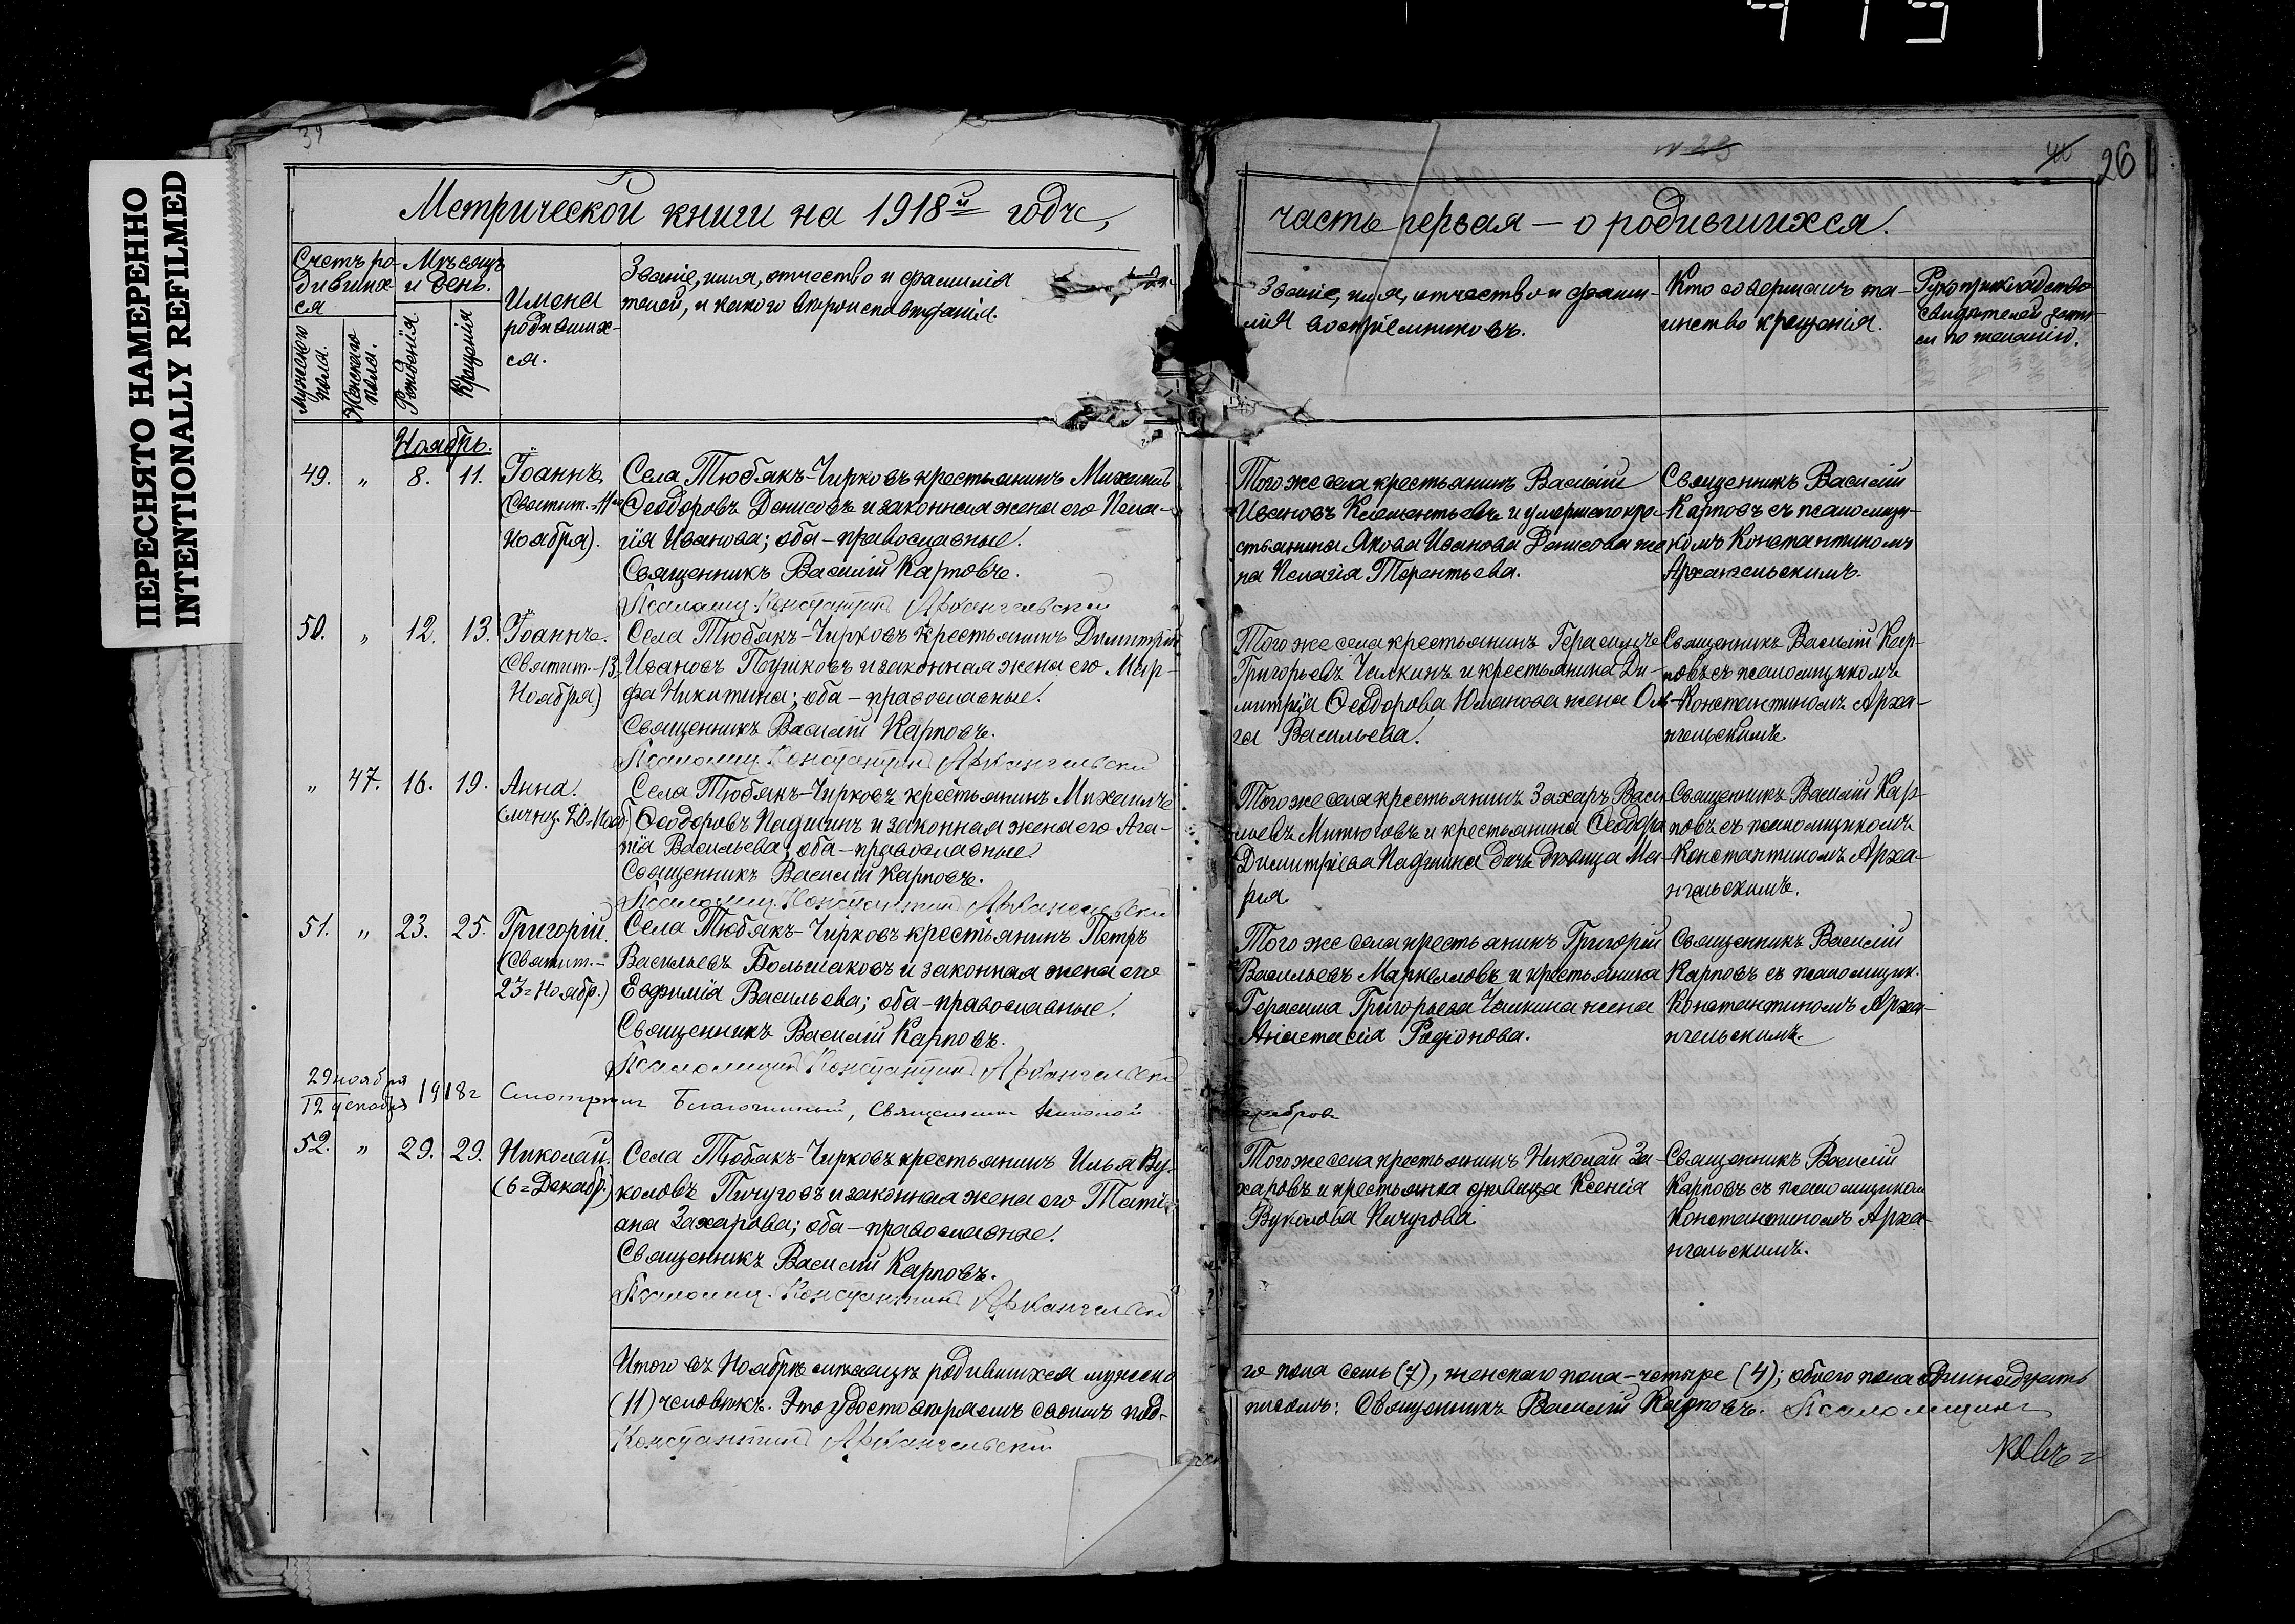 ПЕРЕСНЯТО НАМЕРЕННО
INTENTIONALLY REFILMED
26
Метрической книги на 1918й годъ,
часть первая – о родившихся.
Счетъ ро-
дивших-
ся
Мужескаго
пола.
Женскаго
пола.
Мѣсяцъ
и день.
Рожденія
Крещенія
Имена
родивших-
ся.
Званіе, имя, отчество и фамилія
телей, и какого вѣроисповѣданія.
Званіе, имя, отчество и фами-
лія воспріемниковъ.
Кто совершалъ та-
инство крещенія.
Рукоприкладство
свидѣтелей запи-
си по желанію.
Ноябрь.
49. „ 8. 11. Іоаннъ
(Святит.-11го
Ноября).
Села Тюбякъ-Чирковъ крестьянинъ Михаилъ
Ѳеодоровъ Денисовъ и законная жена его Пела-
гія Иванова; оба – православные.
Священникъ Василій Карповъ.
Псаломщ. Константинъ Архангельскій
Того же села крестьянинъ Василій
Ивановъ Клементьевъ и умершаго кре-
стьянина Якова Иванова Денисова же-
на Пелагія Терентьева.
Священникъ Василій
Карповъ съ псаломщи-
комъ Константиномъ
Архангельскимъ.
50. „ 12. 13. Іоаннъ.
(Святит.-13
Ноября)
Села Тюбякъ-Чирковъ крестьянинъ Димитрій
Ивановъ Пушковъ и законная жена его Мар-
фа Никитина; оба – православные.
Священникъ Василій Карповъ.
Псаломщ. Константинъ Архангельскій
Того же села крестьянинъ Герасимъ
Григорьевъ Чалкинъ и крестьянина Ди-
митрія Ѳеодорова Юманова жена Оль-
га Васильева.
Священникъ Василій Кар-
повъ съ псаломщикомъ
Константиномъ Арха-
нгельскимъ
„ 47. 16. 19. Анна.
(мчнц. 20=Нояб.)
Села Тюбякъ-Чирковъ крестьянинъ Михаилъ
Ѳеодоровъ Падшинъ и законная жена его Ага-
пія Васильева; оба – православные.
Священникъ Василій Карповъ.
Псаломщ. Константинъ Архангельскій
Того же села крестьянинъ Захаръ Васи-
льевъ Митюговъ и крестьянина Ѳеодора
Димитріева Падшина дочь дѣвица Ма-
рія
Священникъ Василій Кар-
повъ съ псаломщикомъ
Константиномъ Арха-
нгельскимъ.
51. „ 23. 25. Григорій.
(Святит.-
23=Ноябр.)
Села Тюбякъ-Чирковъ крестьянинъ Петръ
Васильевъ Большаковъ и законная жена его
Евфимія Васильева; оба – православные.
Священникъ Василій Карповъ.
Псаломщикъ Константинъ Архангельскій
Того же села крестьянинъ Григорій
Васильевъ Маркелловъ и крестьянина
Герасима Григорьева Чалкина жена
Анастасія Родіонова.
Священникъ Василій
Карповъ съ псаломщик.
Константиномъ Арха-
нгельскимъ.
29 ноября
12 декабря 1918г Смотрѣлъ Благочинный, Священникъ Николай
52. „ 29. 29. Николай.
(6=Декабр.)
Села Тюбякъ-Чирковъ крестьянинъ Илья Ву-
коловъ Пичуговъ и законная жена его Татіа-
ана Захарова; оба – православные.
Священникъ Василій Карповъ.
Псаломщ. Константинъ Архангельскій
Того же села крестьянинъ Николай За-
харовъ и крестьянка дѣвица Ксенія
Вуколова Пичугова
Священникъ Василій
Карповъ съ псаломщиком
Константиномъ Арха-
нгельскимъ.
Итого въ Ноябрѣ мѣсяцѣ родившихся мужеска-
го пола семь (7), женскаго пола – четыре (4); обоего пола одиннадцать
(11) человѣкъ. Это удостовѣряемъ своимъ под-
писомъ: Священникъ Василій Карповъ. Псаломщикъ
Константинъ Архангельскій